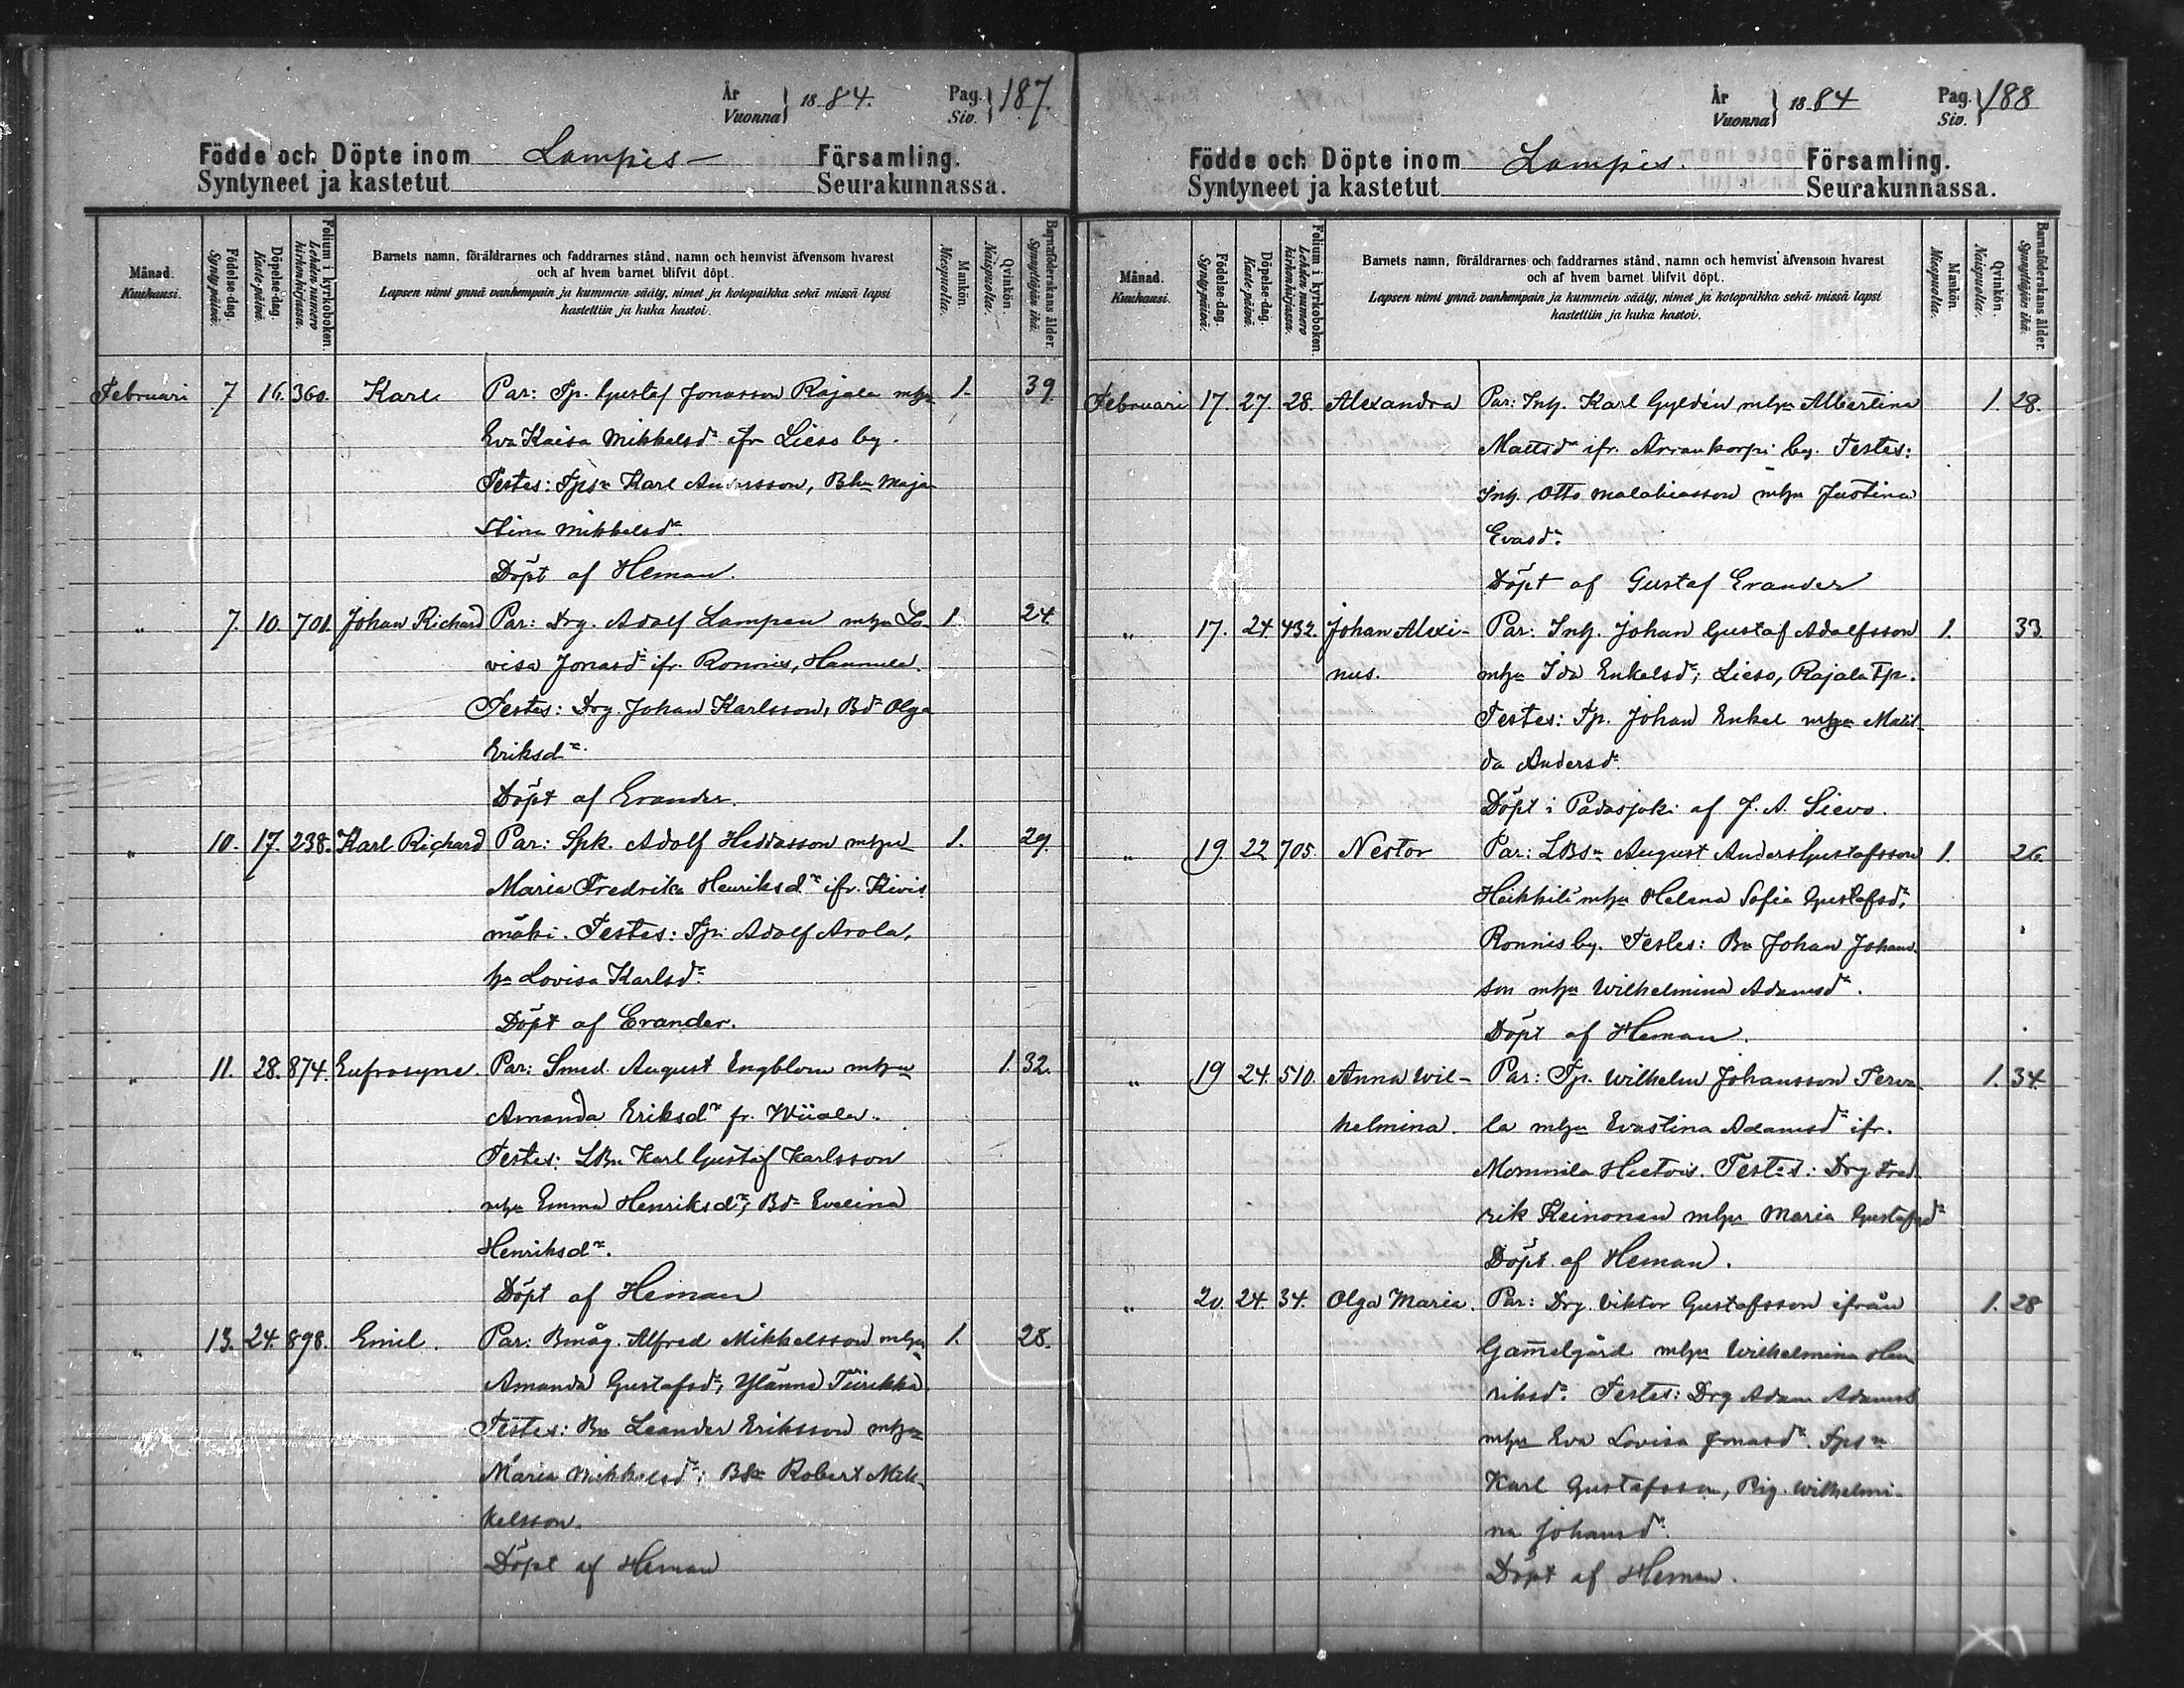 År
Vuonna } 1884. Pag. Siv. } 187.
Födde och Döpte inom Lampis Församling.
Syntyneet ja kastetut Seurakunnassa.
Månad. Kuukausi.
Födelse-dag. Synty-päivä.
Döpelse-dag. Kaste-päivä.
Folium i kyrkoboken. Lehden numero kirkonkirjassa.
Barnets namn, föräldrarnes och faddrarnes stånd, namn och hemvist äfvensom hvarest
och af hvem barnet blifvit döpt.
Lapsen nimi ynnä vanhempain ja kummein sääty, nimet ja kotopaikka sekä missä lapsi
kastettiin ja kuka kastoi.
Mankön. Miespuolta.
Qvinkön. Naispuolta.
Barnaföderskans ålder. Synnyttäjän ikä.
Februari 7 16. 360. Karl Par: Tp. Gustaf Jonasson Rajala mhu 1. 39.
Eva Kaisa Mikkelsdr ifr Lieso by.
Testes: Tpsn Karl Andersson, Bhu Maja
Stina Mikkelsdr
Döpt af Heman.
" 7. 10. 701. Johan Richard Par: Drg. Adolf Lampen mhu Lo- 1. 24.
visa Jonasdr ifr. Ronnis, Hannula.
Testes: Drg. Johan Karlsson, Bdr Olga
Eriksdr
Döpt af Evander.
" 10. 17. 238. Karl Richard Par: Spk. Adolf Heddasson mhu 1. 29.
Maria Fredrika Henriksdr ifr. Kivis
mäki. Testes: Tp. Adolf Arola,
hu Lovisa Karlsdr
Döpt af Evander.
" 11. 28. 874. Eufrosyne. Par: Smed. August Engblom mhu 1. 32.
Amanda Eriksdr fr. Wiiala.
Testes: LBn Karl Gustaf Karlsson
mhu Emma Henriksdr; Bdr Evelina
Henriksdr.
Döpt af Heman
" 13. 24. 898. Emil. Par: Bmåg. Alfred Mikkelsson mhu 1. 28.
Amanda Gustafsdr, Ylänne Tiirikka.
Testes: Bn Leander Eriksson mhu
Maria Mikkelsdr; Bsn Robert Mik-
kelsson.
Döpt af Heman
År
Vuonna } 1884 Pag. Siv. } 188
Födde och Döpte inom Lampis. Församling.
Syntyneet ja kastetut Seurakunnassa.
Månad. Kuukausi.
Födelse-dag. Synty-päivä.
Döpelse-dag. Kaste-päivä.
Folium i kyrkoboken. Lehden numero kirkonkirjassa.
Barnets namn, föräldrarnes och faddrarnes stånd, namn och hemvist äfvensom hvarest
och af hvem barnet blifvit döpt.
Lapsen nimi ynnä vanhempain ja kummein sääty, nimet ja kotopaikka sekä missä lapsi
kastettiin ja kuka kastoi.
Mankön. Miespuolta.
Qvinkön. Naispuolta.
Barnaföderskans ålder. Synnyttäjän ikä.
Februari 17. 27. 28. Alexandra Par: Inh. Karl Gyldén mhu Albertina 1. 28.
Mattsdr ifr. Arrankorpi by. Testes:
Inh. Otto Malakiasson mhu Justina
Evasdr
Döpt af Gustaf Evander
" 17. 24. 432. Johan Alexi- Par: Inh. Johan Gustaf Adolfsson 1. 33
nus. mhu Ida Enkelsdr; Lieso, Rajala Tp.
Testes: Tp. Johan Enkel mhu Matil-
da Andersdr
Döpt i Padasjoki af J. A. Lievo.
" 19. 22. 705. Nestor Par: LBsn August Anders Gustafsson 1. 26.
Heikkilä mhu Helena Sofia Gustafsdr,
Ronnis by. Testes: Bn Johan Johans-
son mhu Wilhelmina Adamsdr.
Döpt af Heman.
" 19 24. 510. Anna Wil- Par: Tp. Wilhelm Johansson Terva- 1. 34
helmina. la mhu Evastina Adamsdr ifr.
Mommila Hietois. Testes: Drg Fred-
rik Keinonen mhu Maria Gustafsdr
Döpt af Heman.
" 20. 24. 34. Olga Maria. Par: Drg. Viktor Gustafsson ifrån 1. 28
Gam̅elgård mhu Wilhelmina Hen-
riksdr. Testes: Drg Adam Adams
mhu Eva Lovisa Jonasdr. Tpsn
Karl Gustafsson, Pig. Wilhelmi-
na Johansdr
Döpt af Heman.